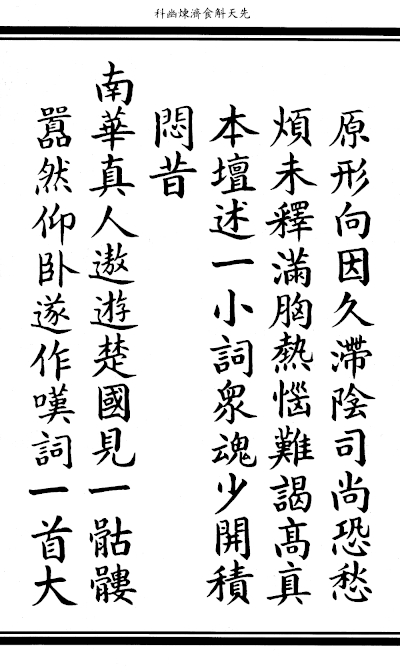 先天斛食濟煉幽科
原形向因久滯陰司尚恐愁
煩未釋滿胸熱惱難謁髙真
本壇述一小詞衆魂少開積
悶昔
南華真人遨遊楚國見一骷髏
囂然仰卧遂作嘆詞一首大